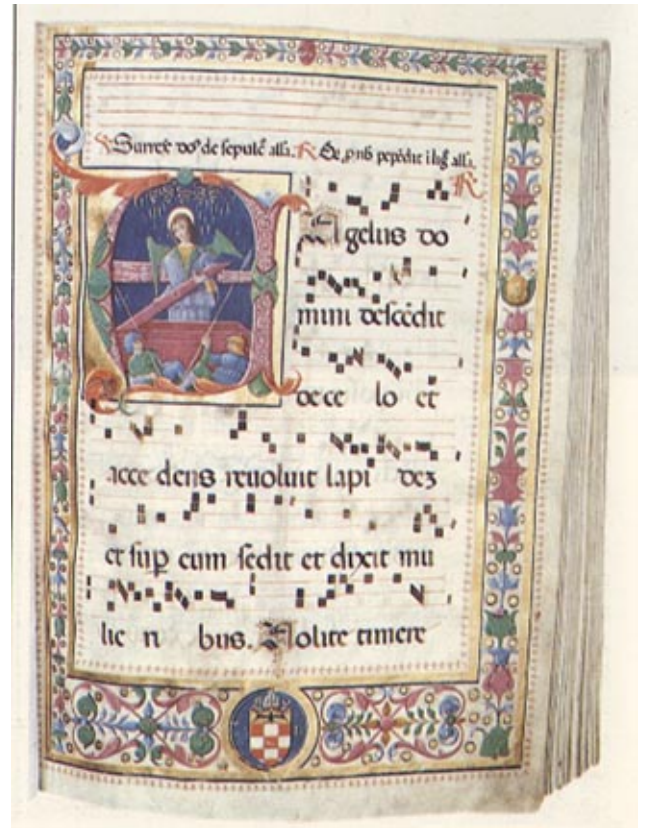 Surrexit dns de sepulc alla. R Qe pnb pepedit i lig alla.
R
Agelus do
mini descedit
de ce lo et
acce dens reuoluit lapi dez
et sup eum sedit et dixit mu
lie ri bus. Nolite timere